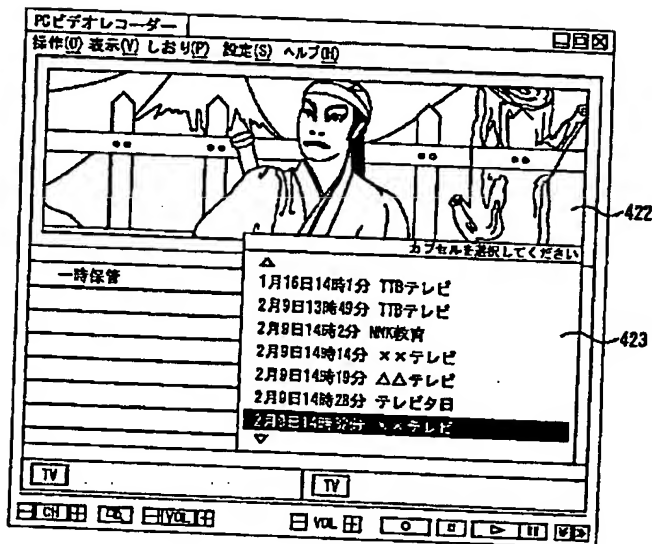 PCビデオレコーダー
操作(O) 表示(V) しおり(P) 設定(S) ヘルプ(H)
422
カプセルを選択してください
一時保管
1月16日14時1分 TTBテレビ
2月9日13時49分 TTBテレビ
2月9日14時2分 NMK教育
2月9日14時14分 ××テレビ
2月9日14時19分 △△テレビ
2月9日14時28分 テレビタ日
2月9日14時 分 ××テレビ
423
TV
TV
CH
VOL
VOL